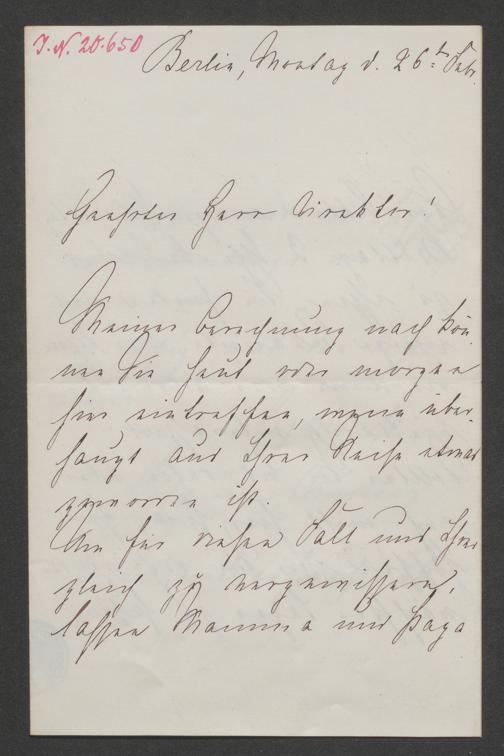 I. N. 20.650
Berlin, Montag d. 26ten Febr.
Geehrter Herr Direktor!
Meiner Berechnung nach kön-
nen Sie heut oder morgen
hier eintreffen, wenn über-
haupt aus Ihrer Reise etwas
geworden ist.
Um für diesen Fall uns Ihrer
gleich zu vergewissern,
lassen Mamma und Papa